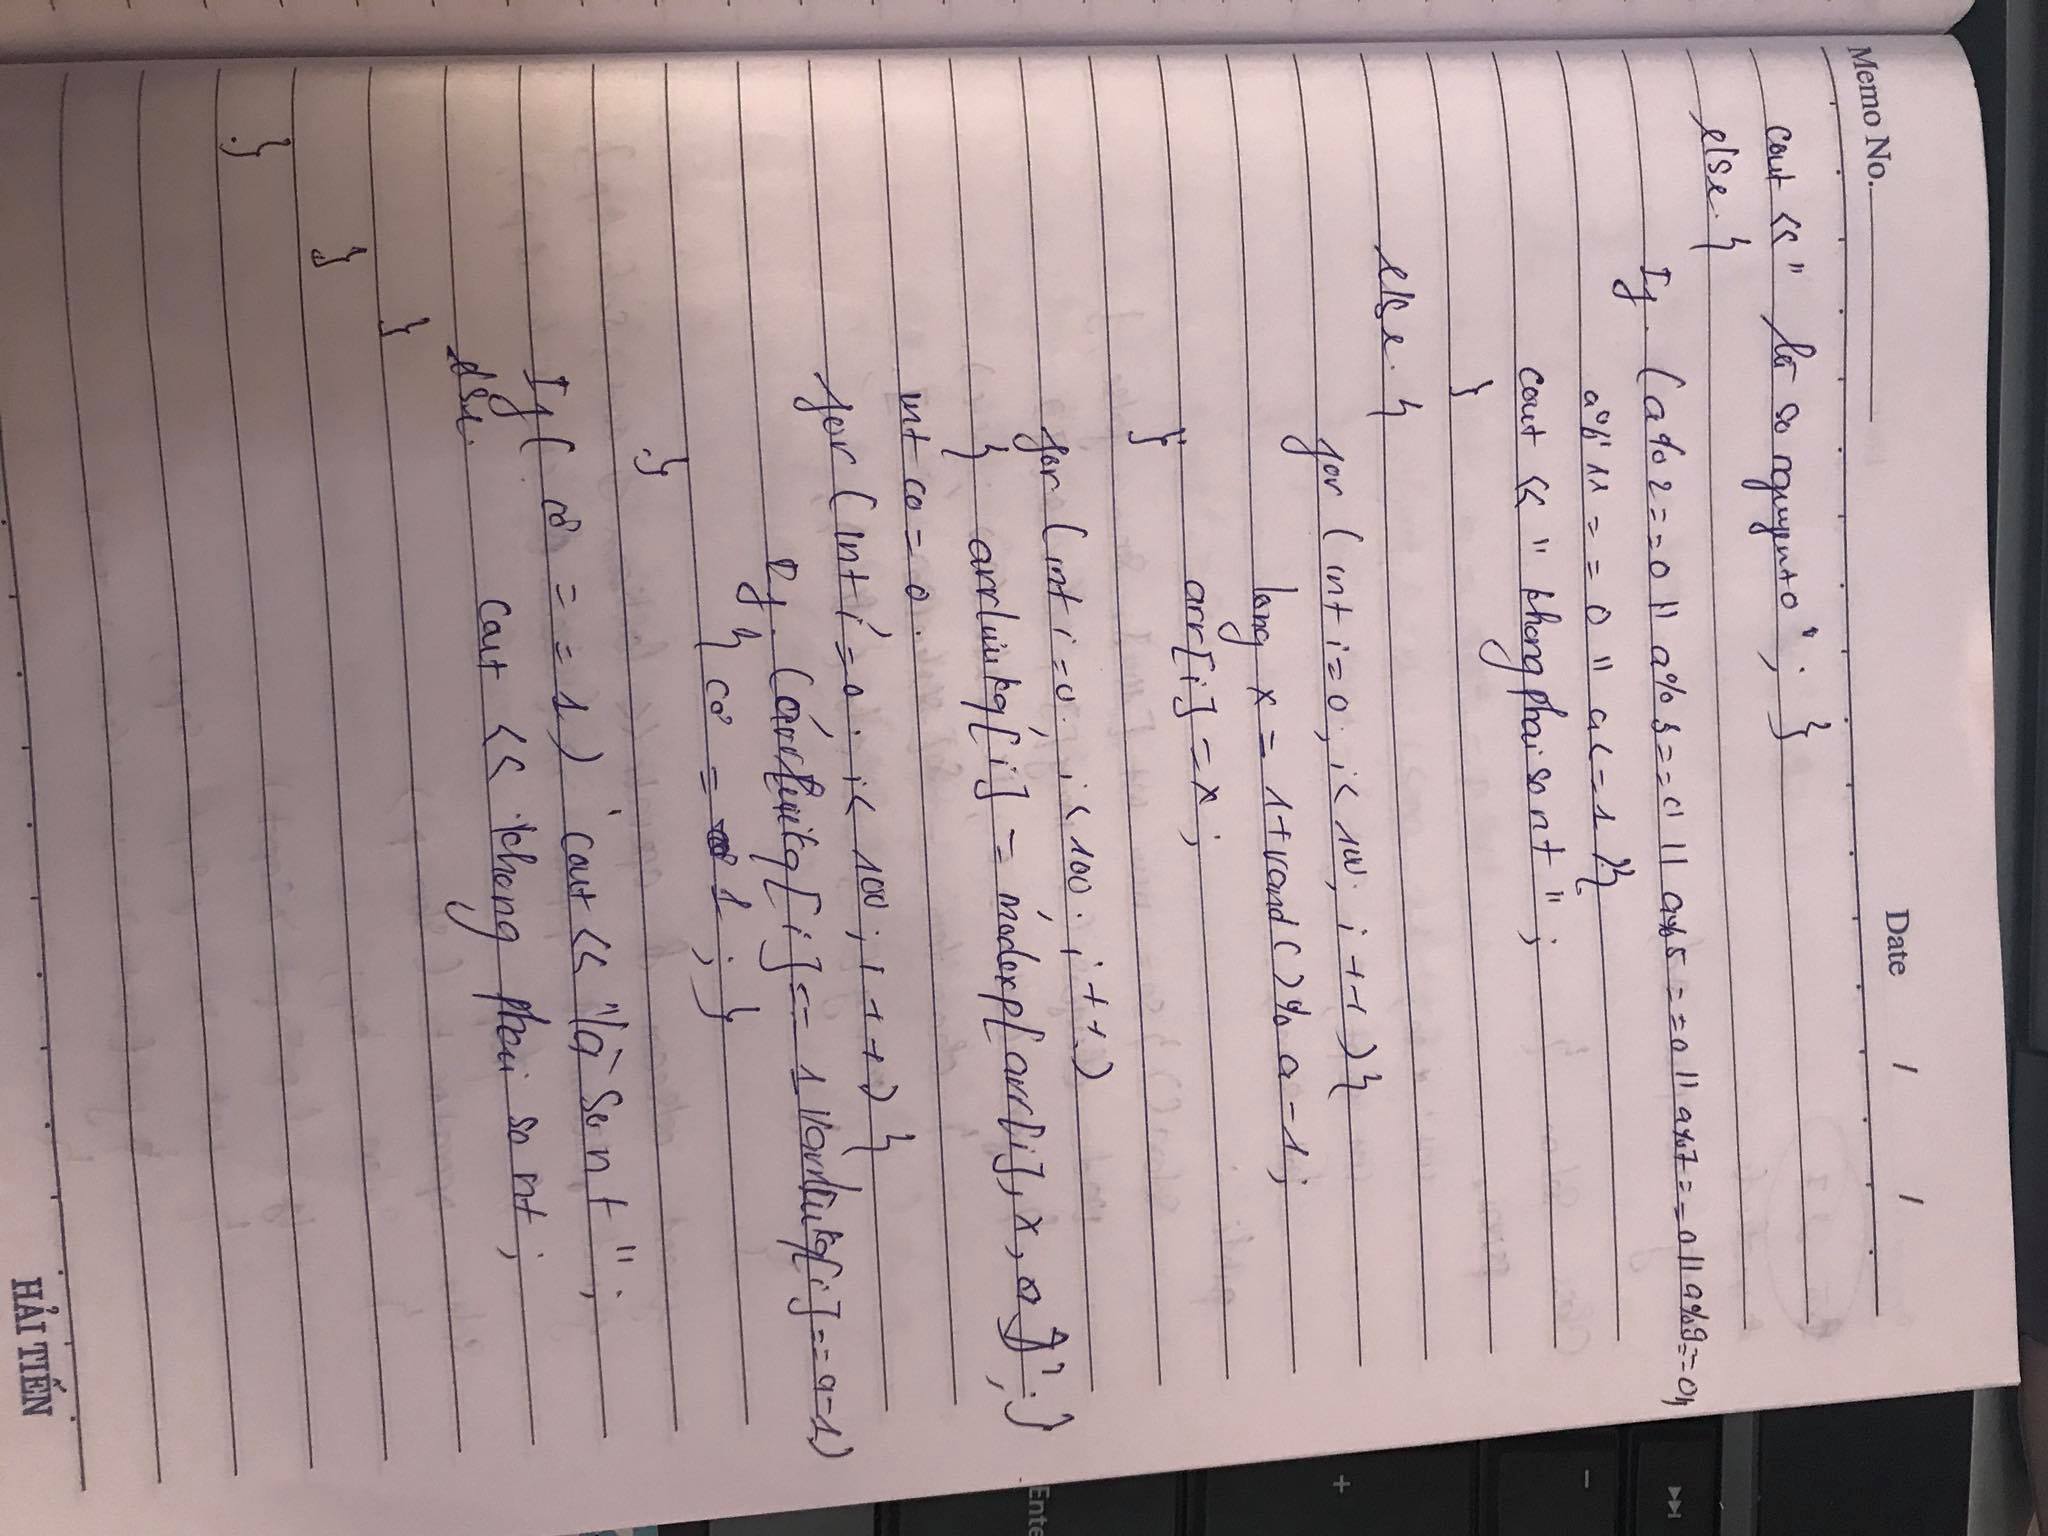 Memo No. Date / /
cout << " là so nguyento " ; }
else {
If (a%2==0 || a%3==0 || a%5==0 || a%7==0 || a%9==0 ||
a%11==0 || a<=1 ){
cout << " khong phai so nt " ;
}
else {
for (int i=0; i<100; i++){
long x = 1+rand()% a-1;
arr[i]=x;
}
for (int i=0; i<100; i++)
{ arrluikq[i] = moderp[arr[i], x, a]; }
int co = 0.
for (int i=0; i<100; i++){
If (arrluikq[i] == 1 || arrluikq[i]==a-1)
{ co = 1 ; }
}
If ( co == 1 ) cout << "là so nt " ;
else cout << khong phai so nt ;
}
}
}
HẢI TIẾN
Ente
+
-